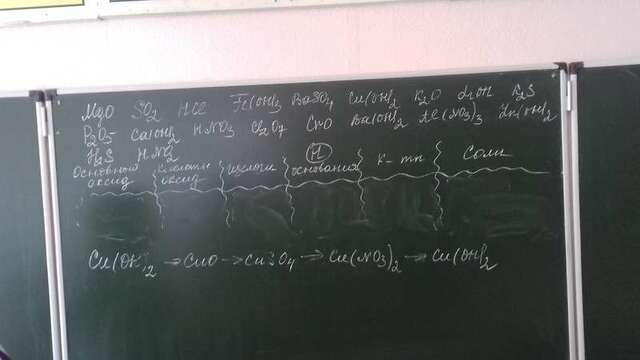 MgO SO2 HCl Fe(OH)3 BaSO4 Cu(OH)2 K2O LiOH K2S
P2O5 Ca(OH)2 HNO3 Cl2O7 CuO Ba(OH)2 Al(NO3)3 Zn(OH)2
H2S HNO2
Основной оксид
оксид
щелочи
Н основания
к-ты
Соли
Cu(OH)2 → CuO → CuSO4 → Cu(NO3)2 → Cu(OH)2